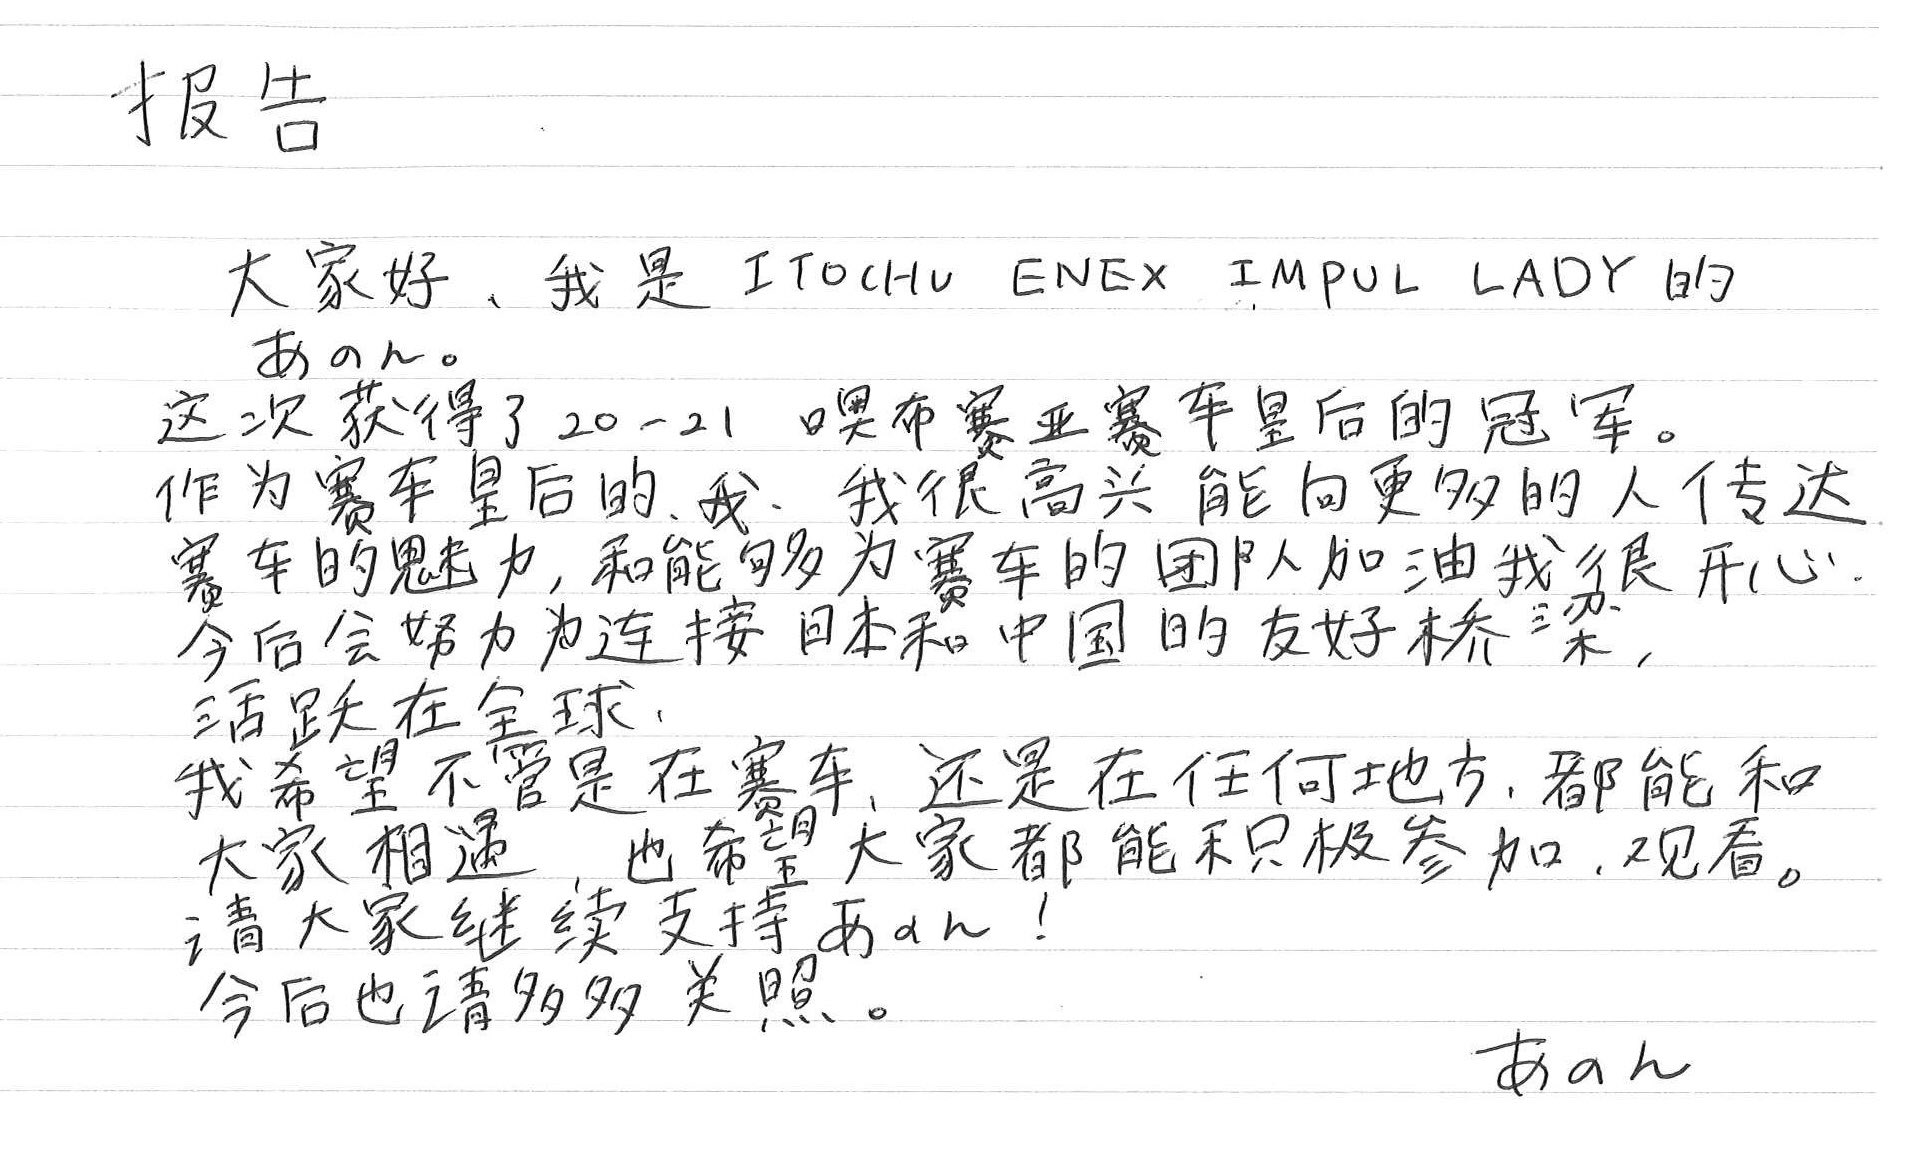 报告
大家好、我是 ITOCHU ENEX IMPUL LADY 的
あのん。
这次获得了20-21 噢布赛亚赛车皇后的冠军。
作为赛车皇后的、我、我很高兴能向更多的人传达
赛车的魅力,和能够为赛车的团队加油我很开心.
今后会努力为连接日本和中国的友好桥梁,
活跃在全球、
我希望不管是在赛车、还是在任何地方、都能和
大家相遇、也希望大家都能积极参加、观看。
请大家继续支持あのん!
今后也请多多关照。
あのん